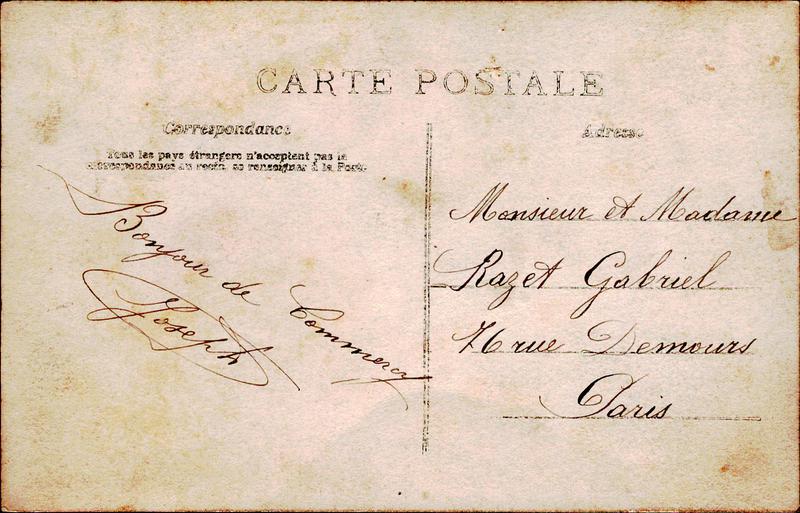 CARTE POSTALE
Correspondance
Tous les pays étrangers n'acceptent pas la
correspondance au recto, se renseigner à la Poste.
Bonjour de Commercy
Joseph
Adresse
Monsieur et Madame
Razet Gabriel
76 rue Demours
Paris